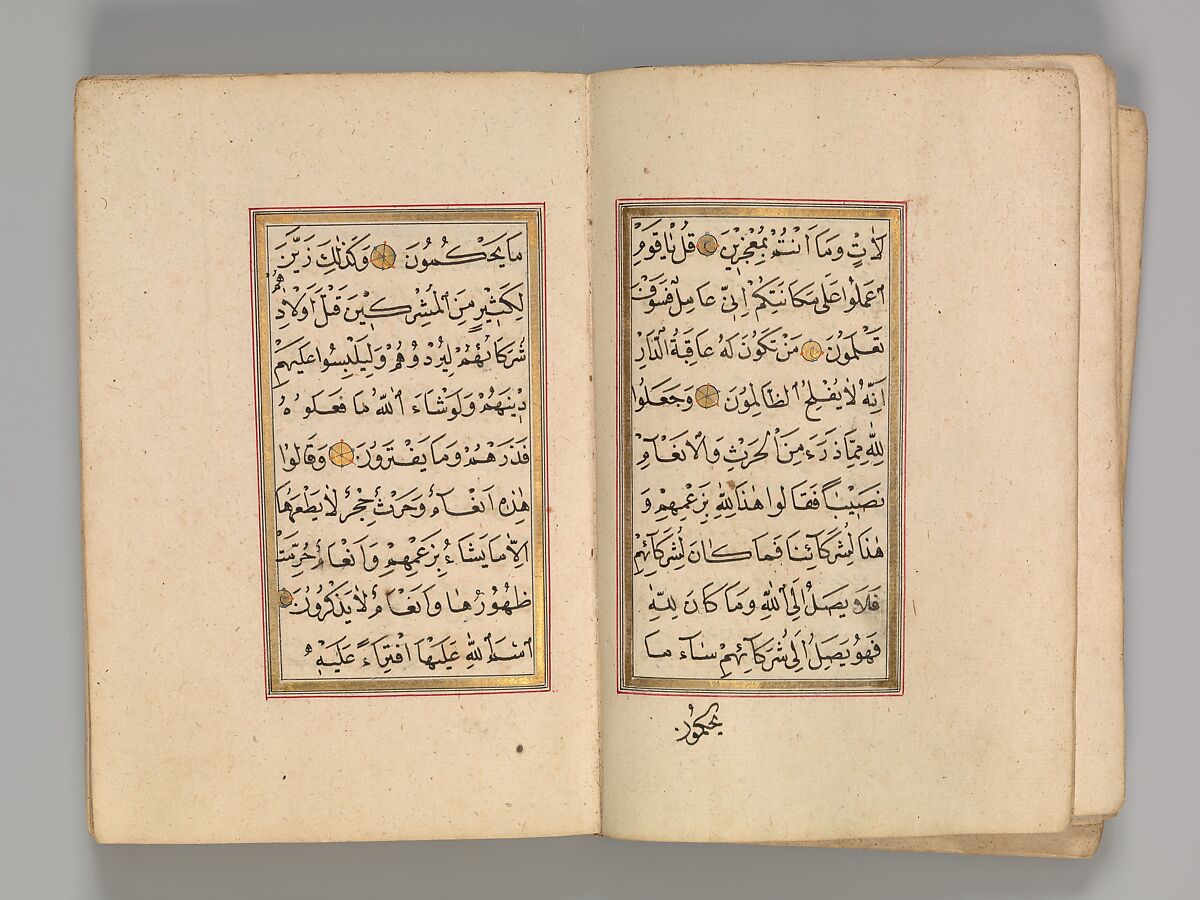 لَاٰتٍ وَمَا اَنْتُمْ بِمُعْجِزِينَ قُلْ يَا قَوْمِ
اعْمَلُوا عَلٰى مَكَانَتِكُمْ اِنِّي عَامِلٌ فَسَوْفَ
تَعْلَمُونَ مَنْ تَكُونُ لَهُ عَاقِبَةُ الدَّارِ
اِنَّهُ لَا يُفْلِحُ الظَّالِمُونَ وَجَعَلُوا
لِلّٰهِ مِمَّا ذَرَءَ مِنَ الْحَرْثِ وَالْاَنْعَامِ
نَصِيبًا فَقَالُوا هٰذَا لِلّٰهِ بِزَعْمِهِمْ وَ
هٰذَا لِشُرَكَائِنَا فَمَا كَانَ لِشُرَكَائِهِمْ
فَلَا يَصِلُ اِلَى اللّٰهِ وَمَا كَانَ لِلّٰهِ
فَهُوَ يَصِلُ اِلٰى شُرَكَائِهِمْ سَاءَ مَا
يحكمون
مَا يَحْكُمُونَ وَكَذٰلِكَ زَيَّنَ
لِكَثِيرٍ مِنَ الْمُشْرِكِينَ قَتْلَ اَوْلَادِهِمْ
شُرَكَاؤُهُمْ لِيُرْدُوهُمْ وَلِيَلْبِسُوا عَلَيْهِمْ
دِينَهُمْ وَلَوْ شَاءَ اللّٰهُ مَا فَعَلُوهُ
فَذَرْهُمْ وَمَا يَفْتَرُونَ وَقَالُوا
هٰذِهِ اَنْعَامٌ وَحَرْثٌ حِجْرٌ لَا يَطْعَمُهَا
اِلَّا مَا يَشَاءُ بِزَعْمِهِمْ وَاَنْعَامٌ حُرِّمَتْ
ظُهُورُهَا وَاَنْعَامٌ لَا يَذْكُرُونَ
اسْمَ اللّٰهِ عَلَيْهَا افْتِرَاءً عَلَيْهِ